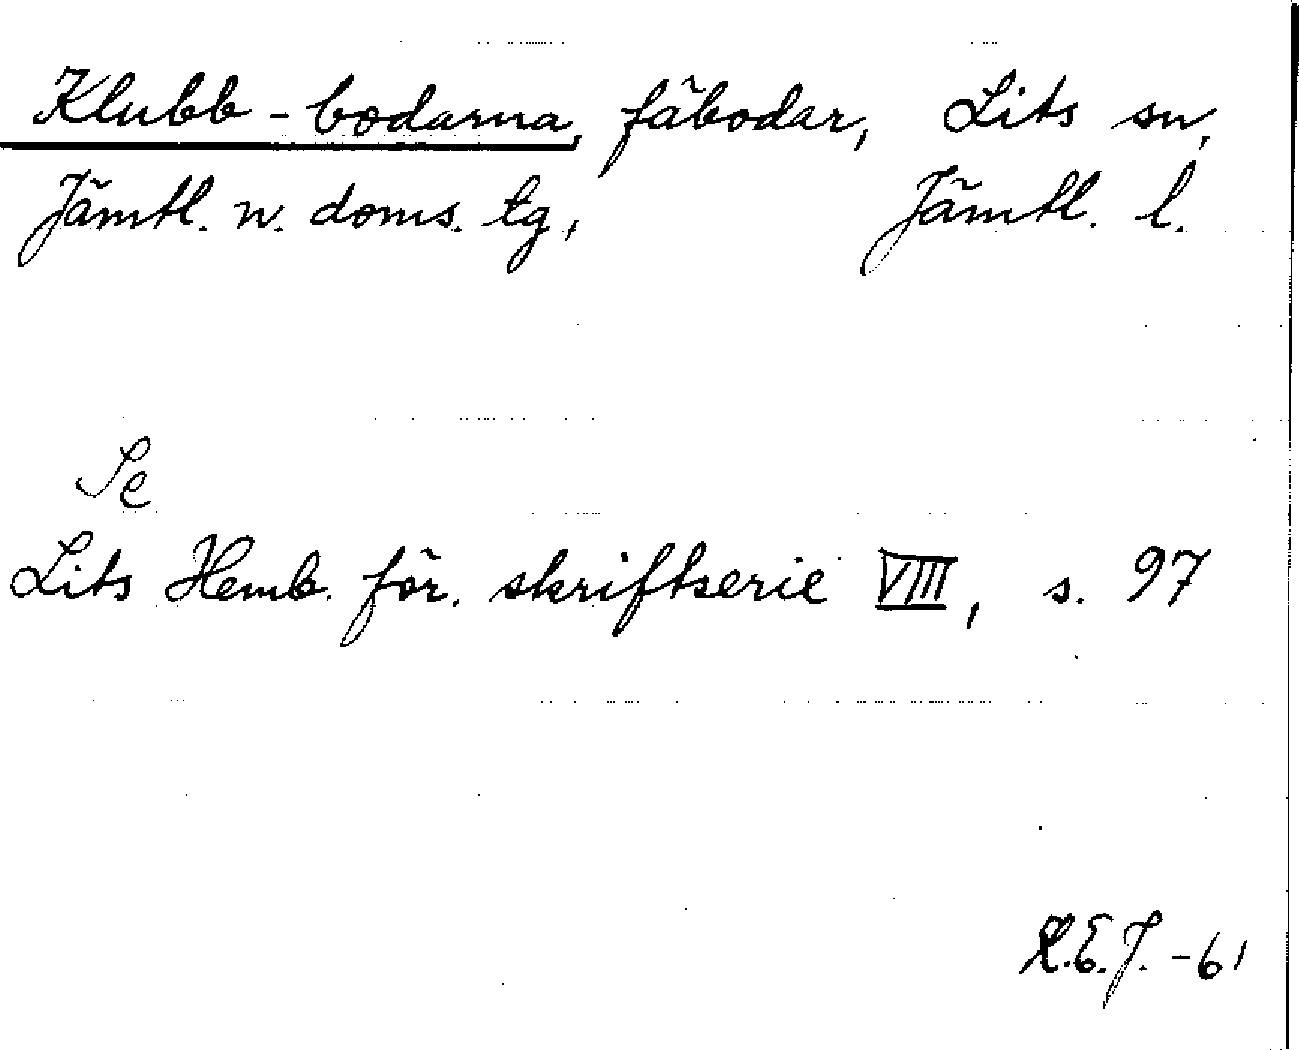 Klubb-bodarna, fäbodar, Lits sn,
Jämtl. n. doms. tg, Jämtl. l.
Se
Lits Hemb. för. skriftserie VIII, s. 97
R.E.J. -61